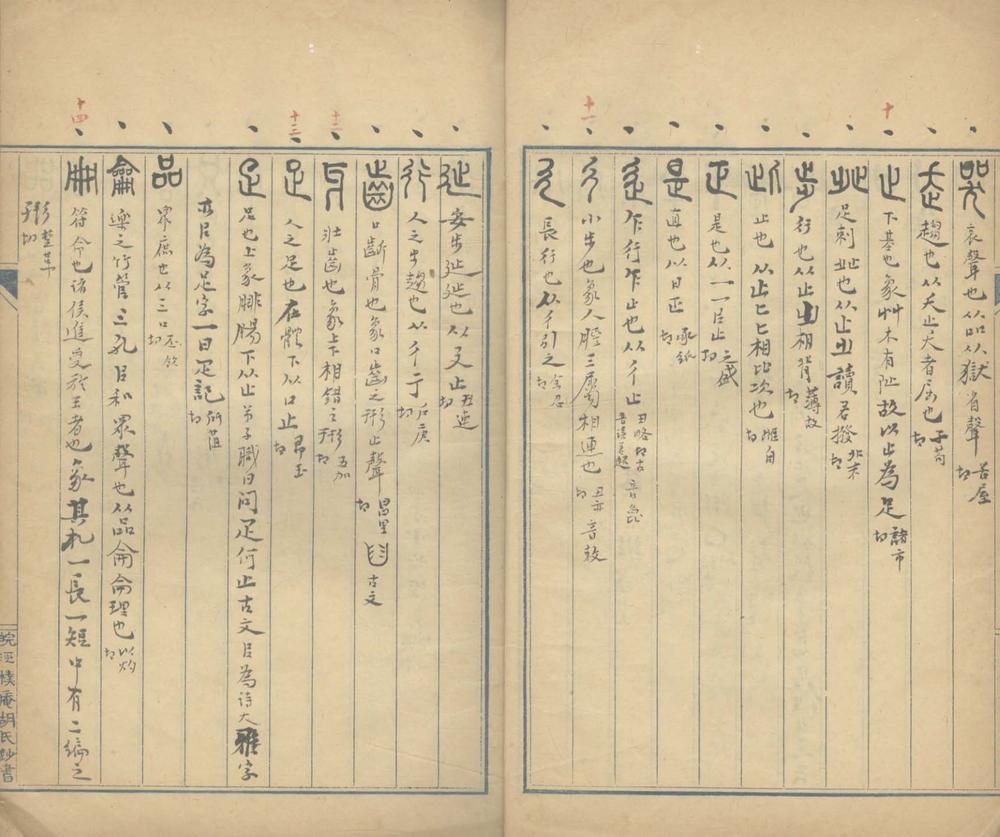 哭 哀聲也从吅从獄省聲 苦屋切
走 趨也从夭止夭者屈也 子苟切
止 下基也象艸木有阯故以止為足 諸市切
癶 足剌癶也从止𣥂讀若撥 北末切
步 行也从止𣥂相背 薄故切
此 止也从止匕匕相比次也 雌氏切
正 是也从一一㠯止 之盛切
是 直也从日正 承紙切
辵 乍行乍止也从彳止 丑略切
彳 小步也象人脛三屬相連也 丑亦切
廴 長行也从彳引之 余忍切
㢟 安步㢟㢟也从廴止 丑連切
行 人之步趨也从彳亍 戶庚切
齒 口齗骨也象口齒之形止聲 昌里切 𦥒 古文
牙 壯齒也象上下相錯之形 五加切
足 人之足也在體下从口止 即玉切
疋 足也上象腓腸下从止弟子職曰問疋何止古文㠯為詩大雅字
亦㠯為足字一曰疋記 所菹切
品 眾庶也从三口 丕飲切
龠 樂之竹管三孔㠯和眾聲也从品侖侖理也 以灼切
冊 符命也諸侯進受於王者也象其札一長一短中有二編之
形 楚革切
十
十一
十二
十三
十四
皖涇樸庵胡氏鈔書